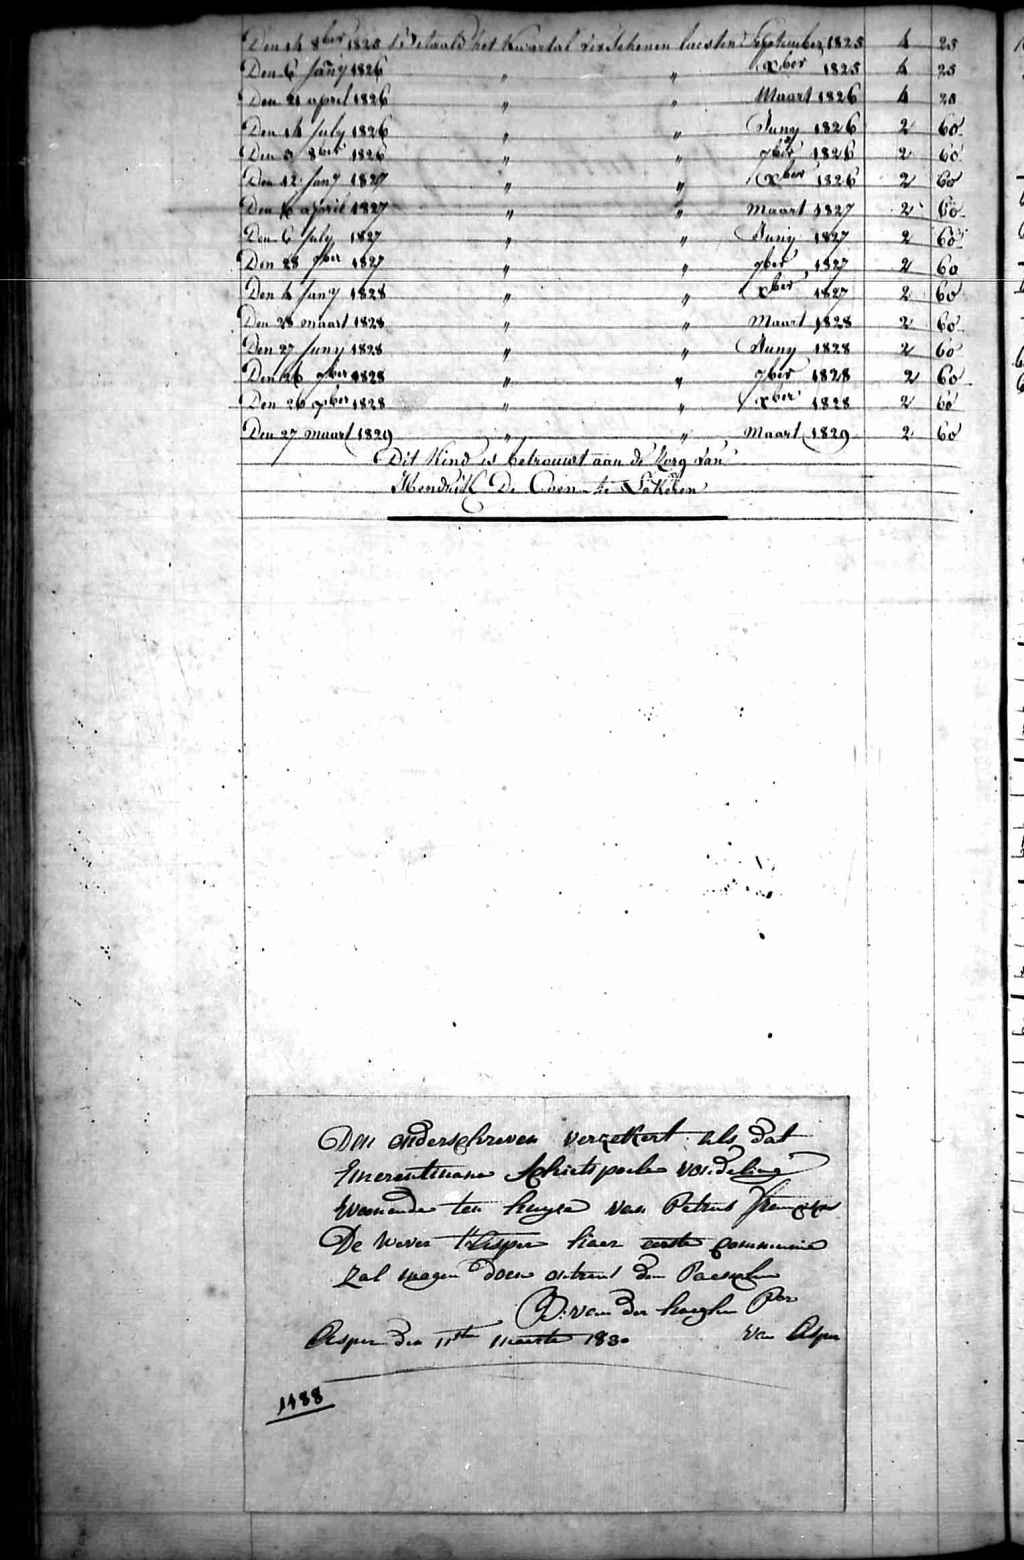 Den 14 8ber 1825 is betaald het kwartal verschenen laesten September 1825 4 25
Den 6 Jany 1826 " " xber 1825 4 25
Den 21 april 1826 " " Maart 1826 4 25
Den 14 July 1826 " " Juny 1826 2 60
Den 9 8ber 1826 " " 7ber 1826 2 60
Den 12 Jany 1827 " " xber 1826 2 60
Den april 1827 " " Maart 1827 2 60
Den 6 July 1827 " " Juny 1827 2 60
Den 28 7ber 1827 " " 7ber 1827 2 60
Den 4 Jany 1828 " " xber 1827 2 60
Den 28 maart 1828 " " Maart 1828 2 60
Den 27 Juny 1828 " " Juny 1828 2 60
Den 26 7ber 1828 " " 7ber 1828 2 60
Den 26 xber 1828 " " xber 1828 2 60
Den 27 maart 1829 " " Maart 1829 2 60
Dit Kind is betrouwt aan de Zorg van
Hendrik De Coen te
Den onderschreven verzekert als dat
Emerentiana Schietspoele vondeling
Woonende ten huyse van Petrus
De Wever t'Asper haer eerste communie
zal mogen doen ontrent den Paesschen
B: van der haeghen Por
Asper den 11ste maerte 1830 van Asper
1488